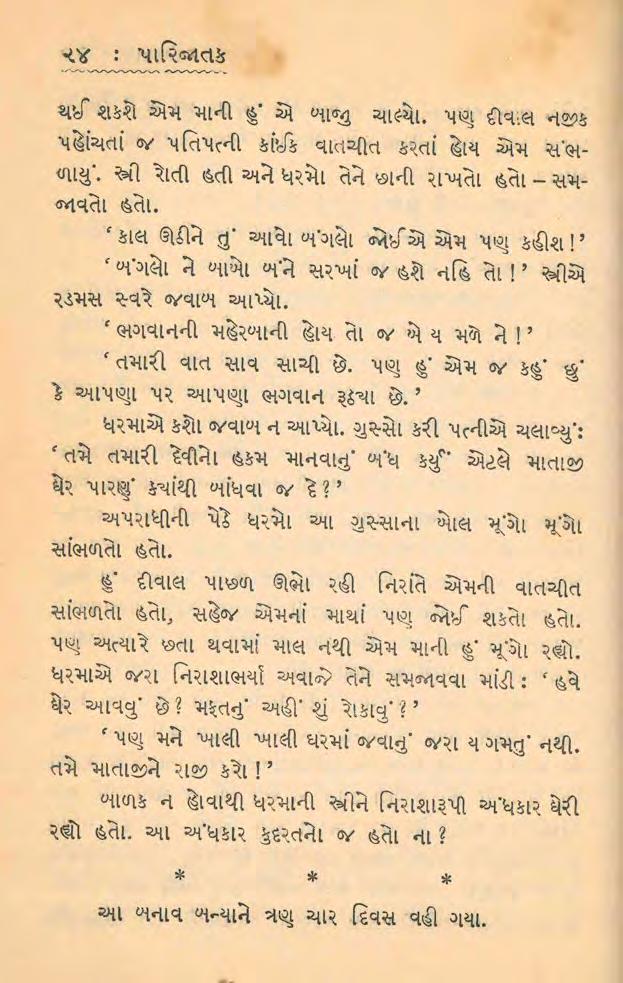 ૨૪ : પારિજાતક
થઈ શકશે એમ માની હું એ બાજુ ચાલ્યો. પણ દીવાલ નજીક
પહોંચતાં જ પતિપત્ની કાંઈક વાતચીત કરતાં હોય એમ સંભ-
ળાયું. સ્ત્રી રોતી હતી અને ધરમો તેને છાની રાખતો હતો – સમ-
જાવતો હતો.
‘કાલ ઊઠીને તું આવો બંગલો જોઈએ એમ પણ કહીશ!’
‘બંગલો ને બાબો બંને સરખાં જ હશે નહિ તો!’ સ્ત્રીએ
રડમસ સ્વરે જવાબ આપ્યો.
‘ભગવાનની મહેરબાની હોય તો જ એ ય મળે ને!’
‘તમારી વાત સાવ સાચી છે. પણ હું એમ જ કહું છું
કે આપણા પર આપણા ભગવાન રૂઠ્યા છે.’
ધરમાએ કશો જવાબ ન આપ્યો. ગુસ્સો કરી પત્નીએ ચલાવ્યું:
‘તમે તમારી દેવીનો હકમ માનવાનું બંધ કર્યું એટલે માતાજી
ઘેર પારણું ક્યાંથી બાંધવા જ દે?’
અપરાધીની પેઠે ધરમો આ ગુસ્સાના બોલ મૂંગો મૂંગો
સાંભળતો હતો.
હું દીવાલ પાછળ ઊભો રહી નિરાંતે એમની વાતચીત
સાંભળતો હતો, સહેજ એમનાં માથાં પણ જોઈ શકતો હતો.
પણ અત્યારે છતા થવામાં માલ નથી એમ માની હું મૂંગો રહ્યો.
ધરમાએ જરા નિરાશાભર્યા અવાજે તેને સમજાવવા માંડી: ‘હવે
ઘેર આવવું છે? મફતનું અહીં શું રોકાવું?’
‘પણ મને ખાલી ખાલી ઘરમાં જવાનું જરા ય ગમતું નથી.
તમે માતાજીને રાજી કરો!’
બાળક ન હોવાથી ધરમાની સ્ત્રીને નિરાશારૂપી અંધકાર ઘેરી
રહ્યો હતો. આ અંધકાર કુદરતનો જ હતો ના?
* * *
આ બનાવ બન્યાને ત્રણ ચાર દિવસ વહી ગયા.